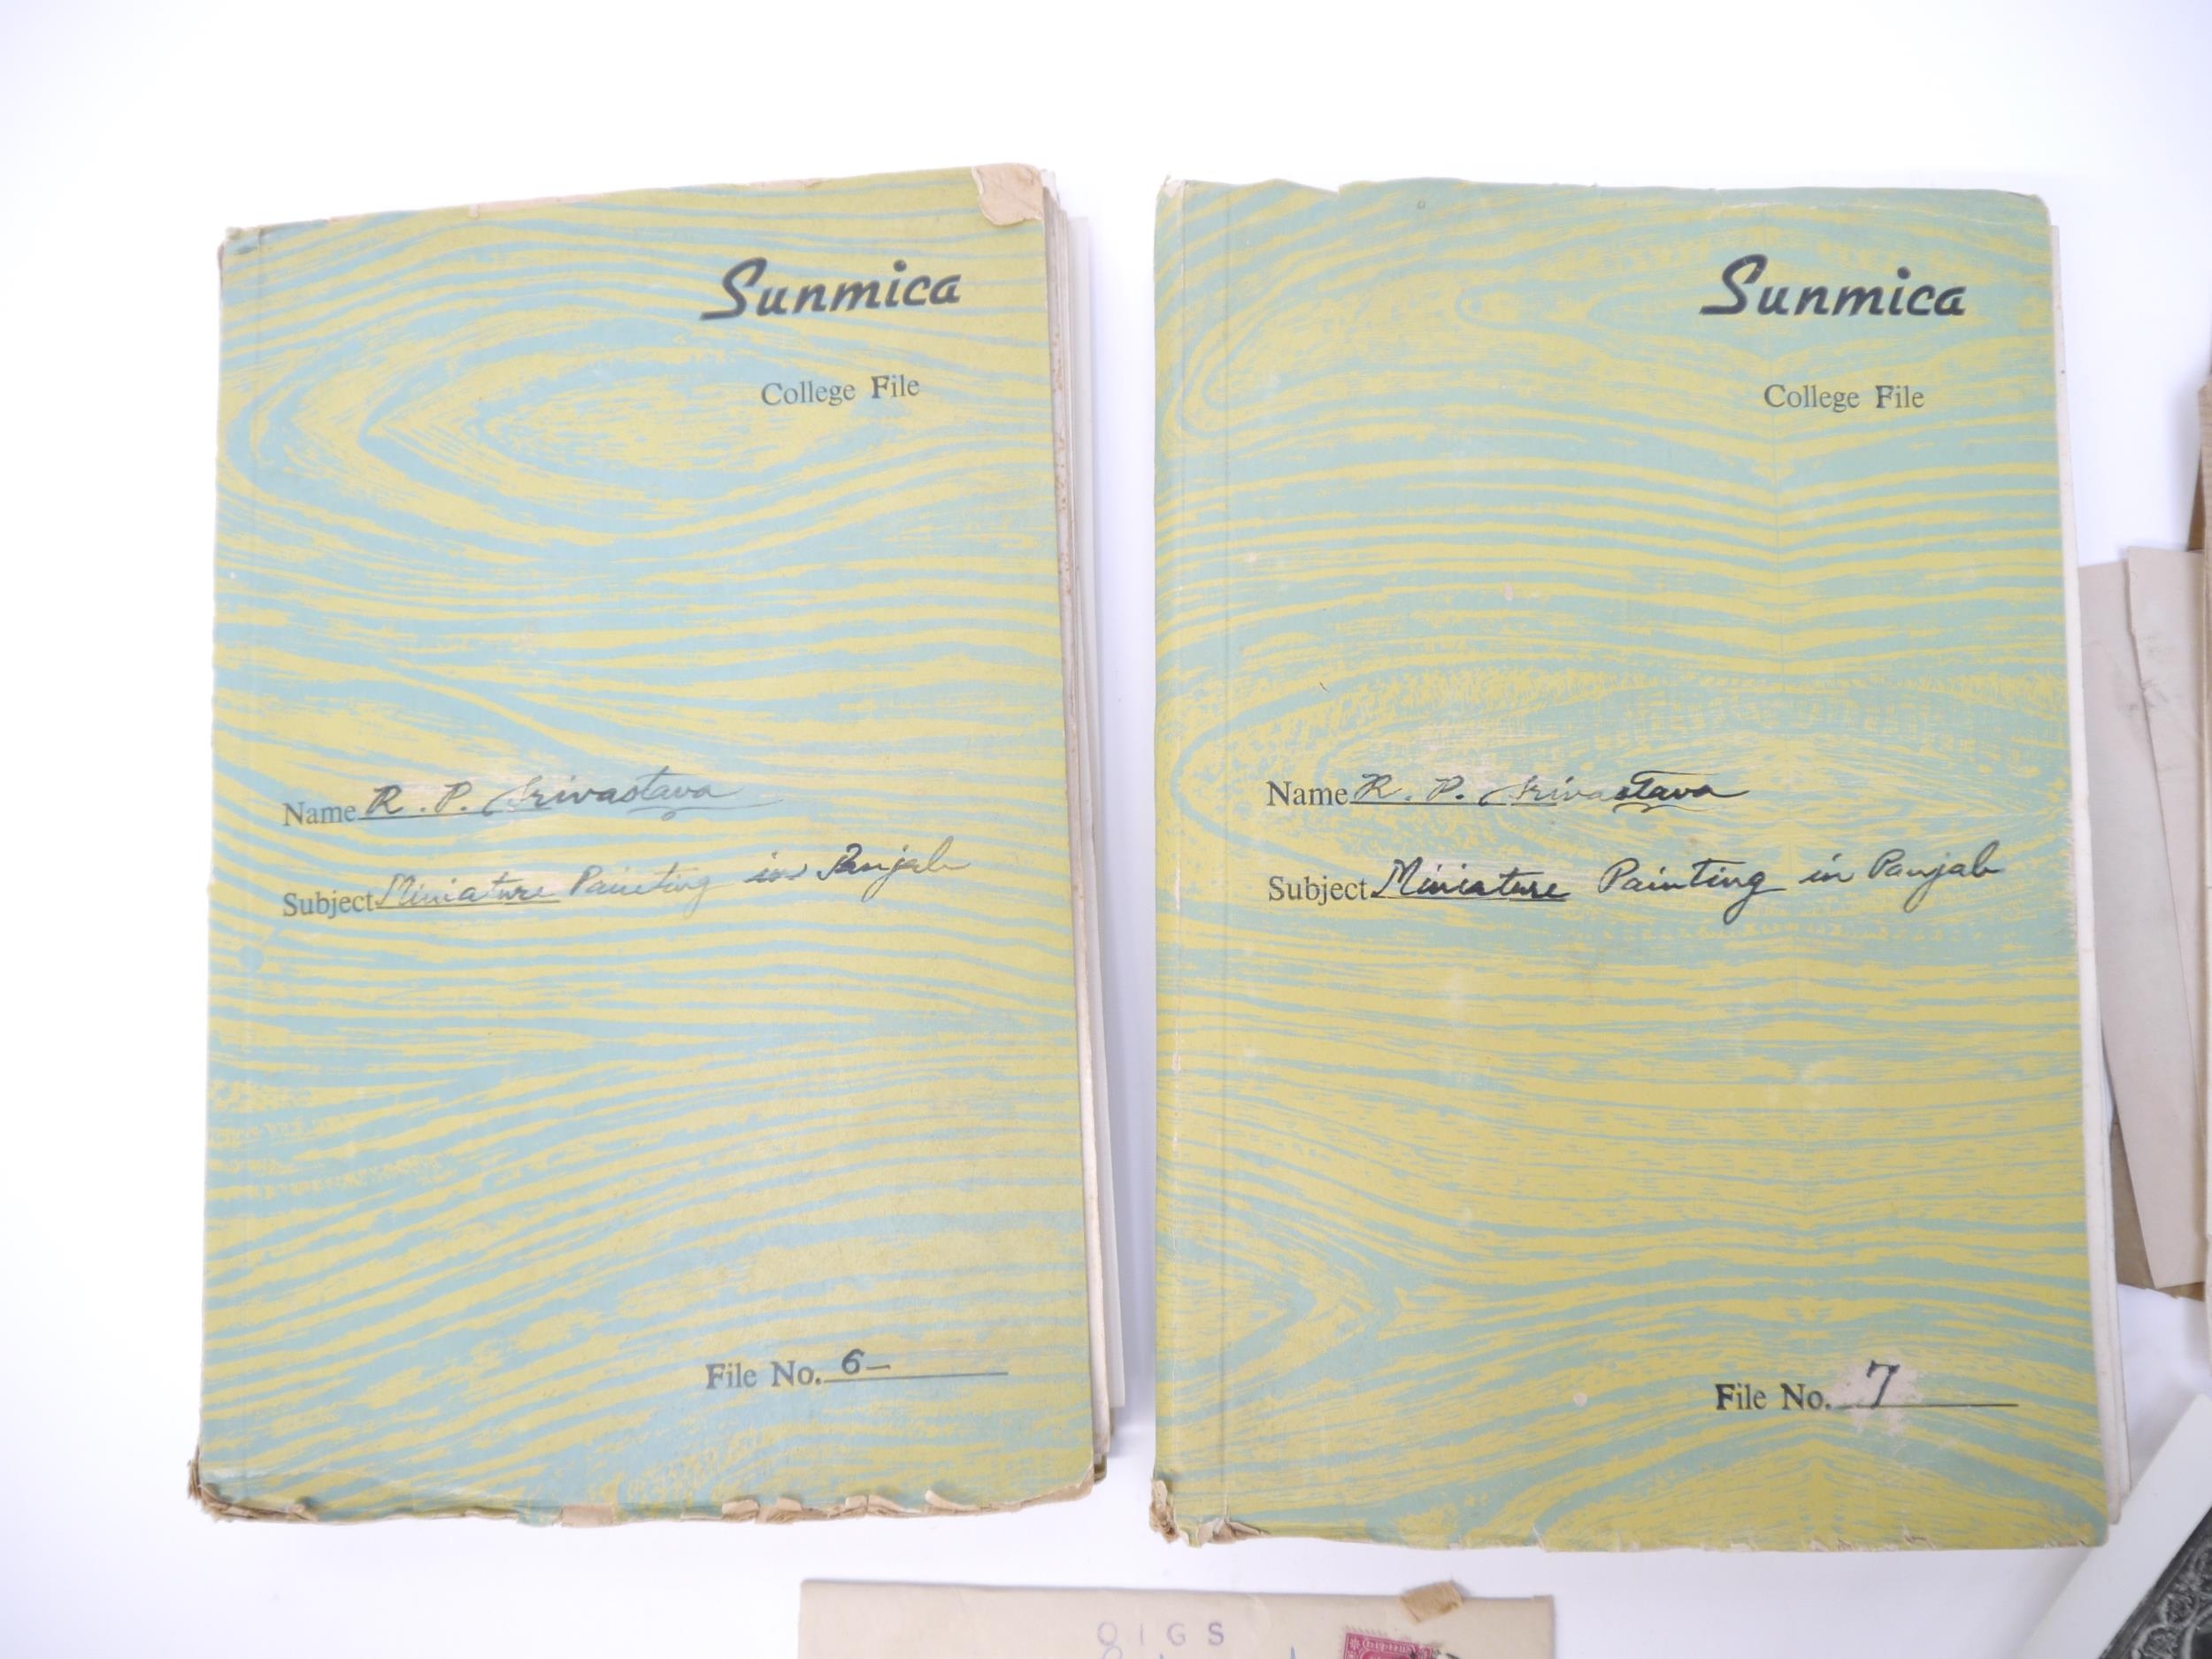 Sunmica
College File
Name R. P. Srivastava
Subject Miniature Painting in Panjab
File No. 6-
Sunmica
College File
Name R. P. Srivastava
Subject Miniature Painting in Panjab
File No. 7
OIGS